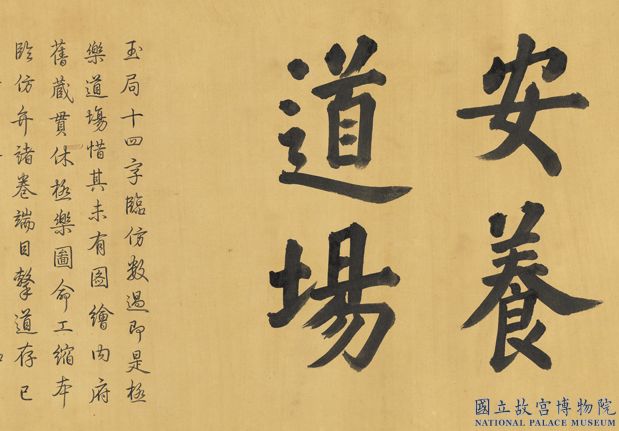 安養
道場
玉局十四字臨仿數過即是極
樂道場惜其未有圖繪內府
舊藏貫休極樂圖命工縮本
臨仿弁諸卷端目擊道存已
國立故宮博物院
NATIONAL PALACE MUSEUM